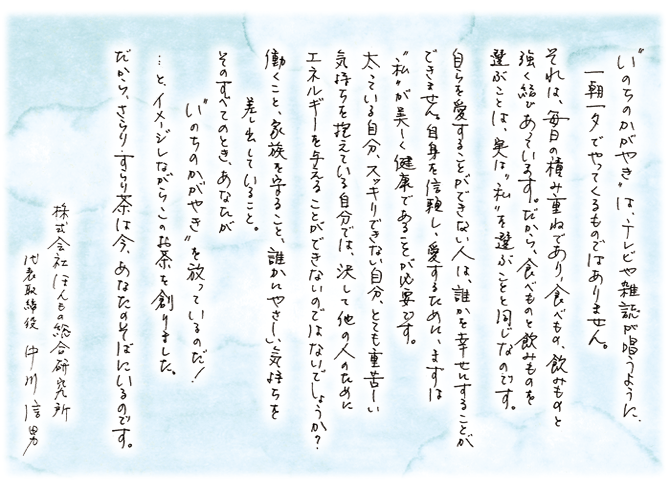 "いのちのかがやき"は、テレビや雑誌が唱うように、
一朝一夕でやってくるものではありません。
それは、毎日の積み重ねであり、食べもの、飲みものと
強く結びあっています。だから、食べものと飲みものを
選ぶことは、実は"私"を選ぶことと同じなのです。
自らを愛することができない人は、誰かを幸せにすることが
できません。自身を信頼し、愛するために、まずは
"私"が美しく健康であることが必要です。
太っている自分、スッキリできない自分、とても重苦しい
気持ちを抱えている自分では、決して他の人のために
エネルギーを与えることができないのではないでしょうか？
働くこと、家族を守ること、誰かにやさしい気持ちを
差し出していること。
そのすべてのとき、あなたが
"いのちのかがやき"を放っているのだ！
…と、イメージしながらこのお茶を創りました。
だから、さらり・すらり茶は今、あなたのそばにいるのです。
株式会社ほんもの総合研究所
代表取締役 中川信男